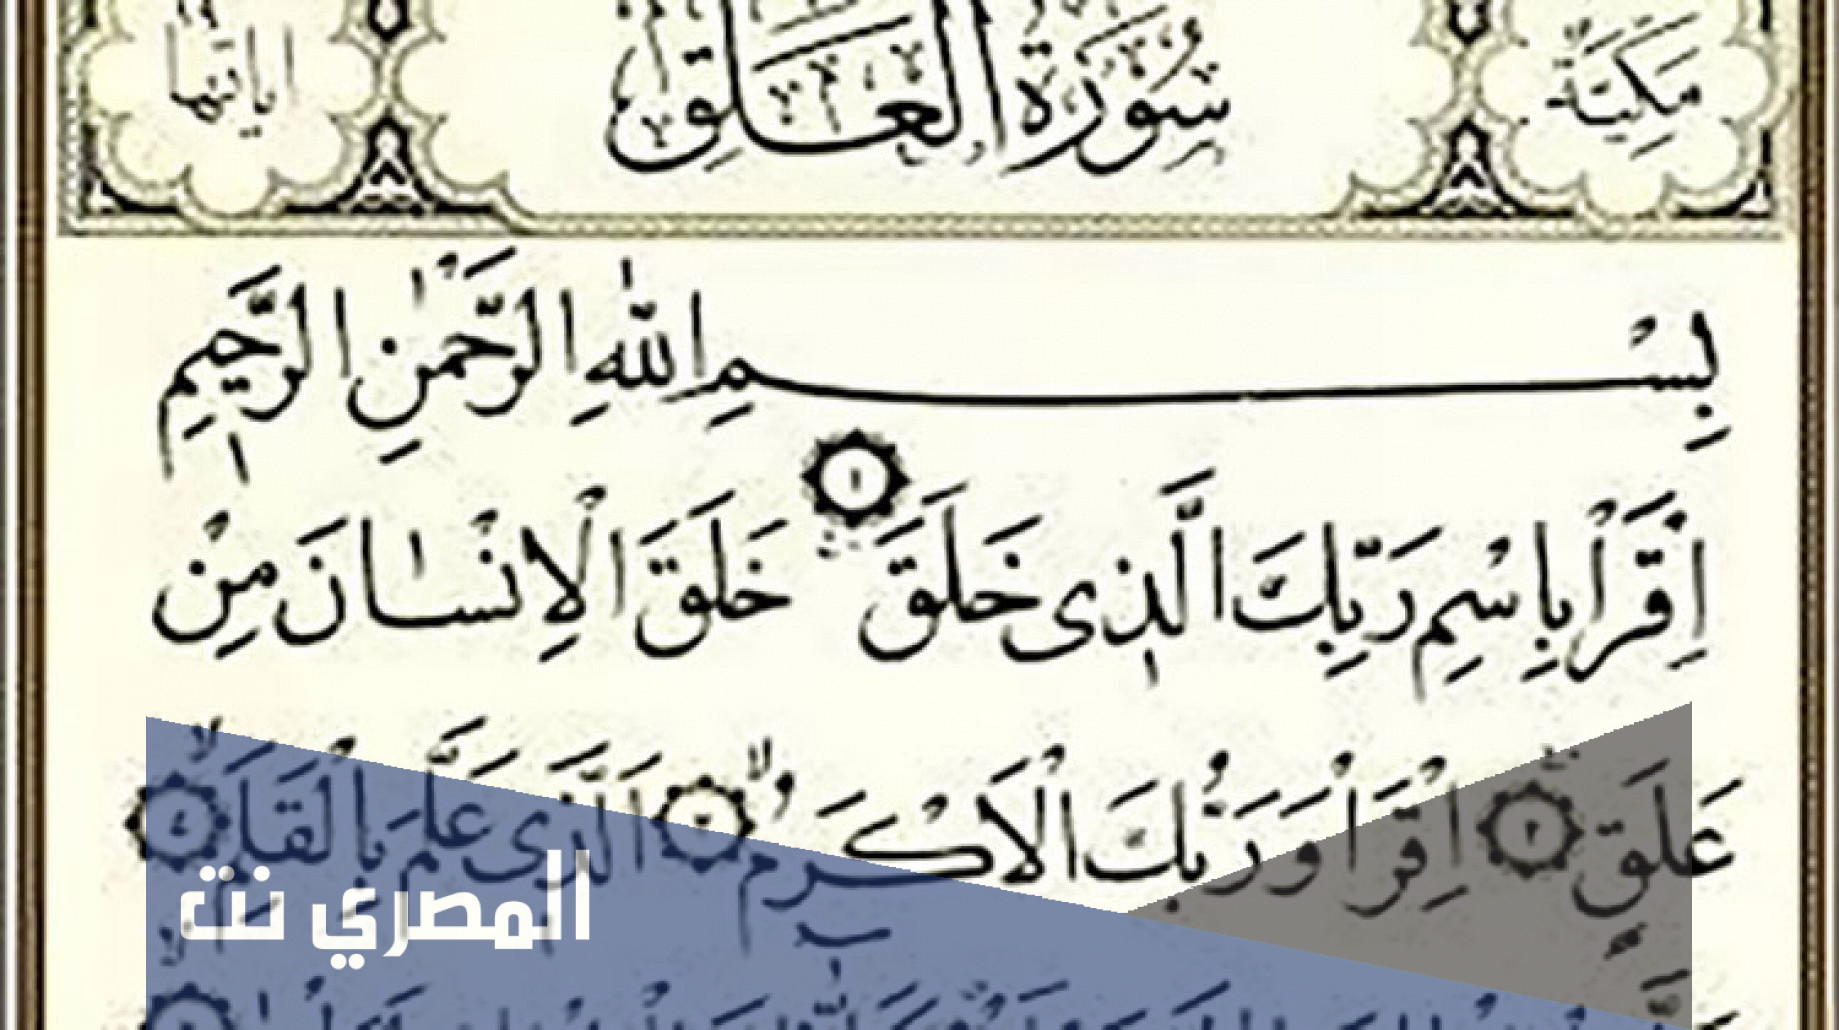 مَكِّيَّة
سُورَةُ الْعَلَقِ
بِسْمِ اللّٰهِ الرَّحْمٰنِ الرَّحِيمِ
اِقْرَاْ بِاسْمِ رَبِّكَ الَّذِى خَلَقَ ۚ ﴿١﴾ خَلَقَ الْاِنْسَانَ مِنْ
عَلَقٍ ۚ ﴿٢﴾ اِقْرَاْ وَرَبُّكَ الْاَكْرَمُ ۙ ﴿٣﴾ الَّذِى عَلَّمَ بِالْقَلَمِ ۙ ﴿٤﴾
المصري نت